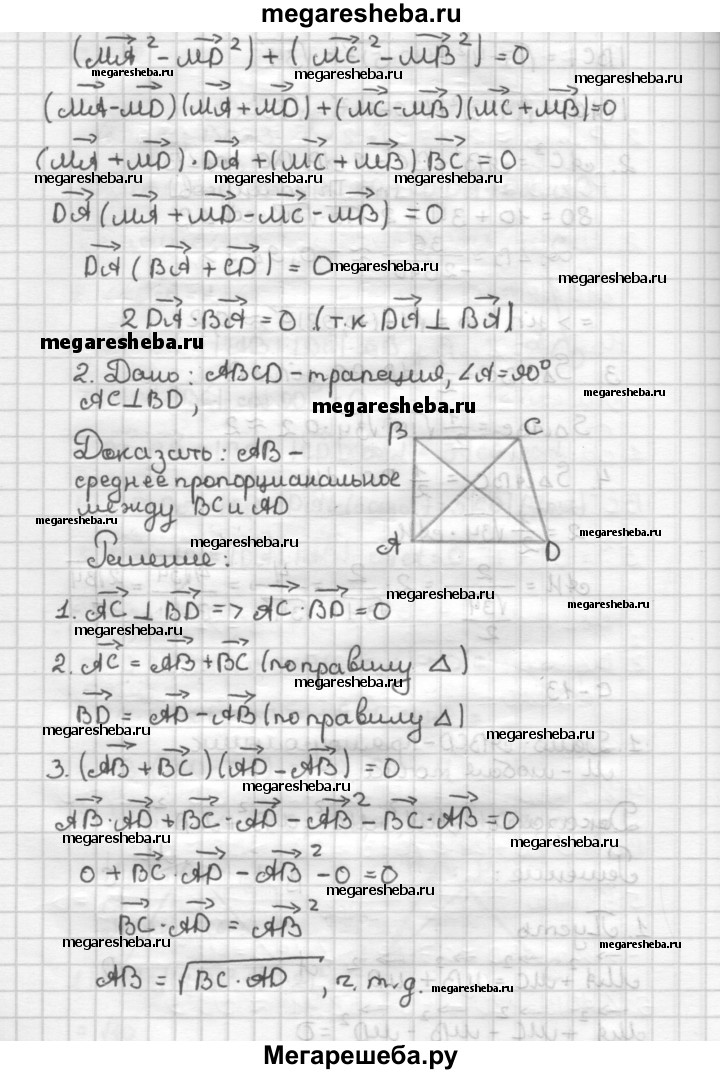 megaresheba.ru
(MA² - MD²) + (MC² - MB²) = 0
megaresheba.ru megaresheba.ru megaresheba.ru
(MA - MD)(MA + MD) + (MC - MB)(MC + MB) = 0
(MA + MD) · DA + (MC + MB) · BC = 0
megaresheba.ru megaresheba.ru megaresheba.ru
DA (MA + MD - MC - MB) = 0
DA (BA + CD) = 0 megaresheba.ru
megaresheba.ru
2 DA · BA = 0 (т.к DA ⊥ BA)
megaresheba.ru
2. Дано: ABCD - трапеция, ∠A = 90°
megaresheba.ru
AC ⊥ BD, megaresheba.ru
B C
Доказать: AB -
среднее пропорциональное
между BC и AD
megaresheba.ru megaresheba.ru megaresheba.ru
A D
Решение:
1. AC ⊥ BD => AC · BD = 0
megaresheba.ru megaresheba.ru
2. AC = AB + BC (по правилу Δ)
megaresheba.ru
BD = AD - AB (по правилу Δ)
megaresheba.ru megaresheba.ru
3. (AB + BC)(AD - AB) = 0
megaresheba.ru
AB · AD + BC · AD - AB² - BC · AB = 0
megaresheba.ru megaresheba.ru
0 + BC · AD - AB² - 0 = 0
megaresheba.ru
BC · AD = AB²
megaresheba.ru megaresheba.ru megaresheba.ru
AB = √BC · AD, ч. т. д.
megaresheba.ru
Мегарешеба.ру